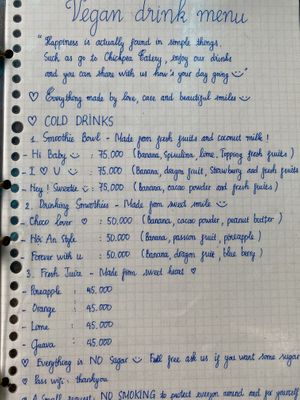 Vegan drink menu
"Happiness is actually found in simple things,
Such as go to Chickpea Eatery, enjoy our drinks
and you can share with us how's your day going"
♡ Everything made by love, care and beautiful smiles
♡ COLD DRINKS
1. Smoothie Bowl - Made from fresh fruits and coconut milk!
- Hi Baby : 75,000 (Banana, Spirulina, lime, Topping fresh fruits)
- I ♡ U : 75,000 (Banana, dragon fruit, Strawberry and fresh fruits)
- Hey! Sweetie : 75,000 (Banana, cacao powder and fresh fruits)
2. Drinking Smoothies - Made from sweet smile
- Choco lover ♡ : 50,000 (Banana, cacao powder, peanut butter)
- Hội An Style : 50.000 (Banana, passion fruit, pineapple)
- Forever with u : 50.000 (Banana, dragon fruit, blue berry)
3. Fresh Juice - Made from sweet heart ♡
- Pineapple : 45.000
- Orange : 45.000
- Lime : 45.000
- Guava : 45.000
♡ Everything is NO Sugar Full free ask us if you want some sugar
♡ Pass wifi: thankyou
A Small request: NO SMOKING to protect everyone around and for yourself